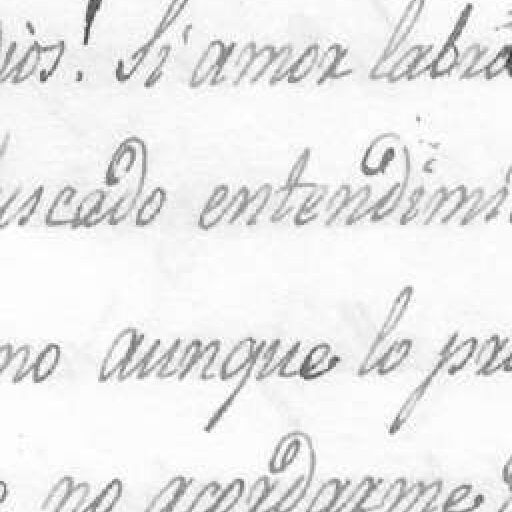 ios! Si amor labra
uscado entendimi
no aunque lo pr
no acordarme